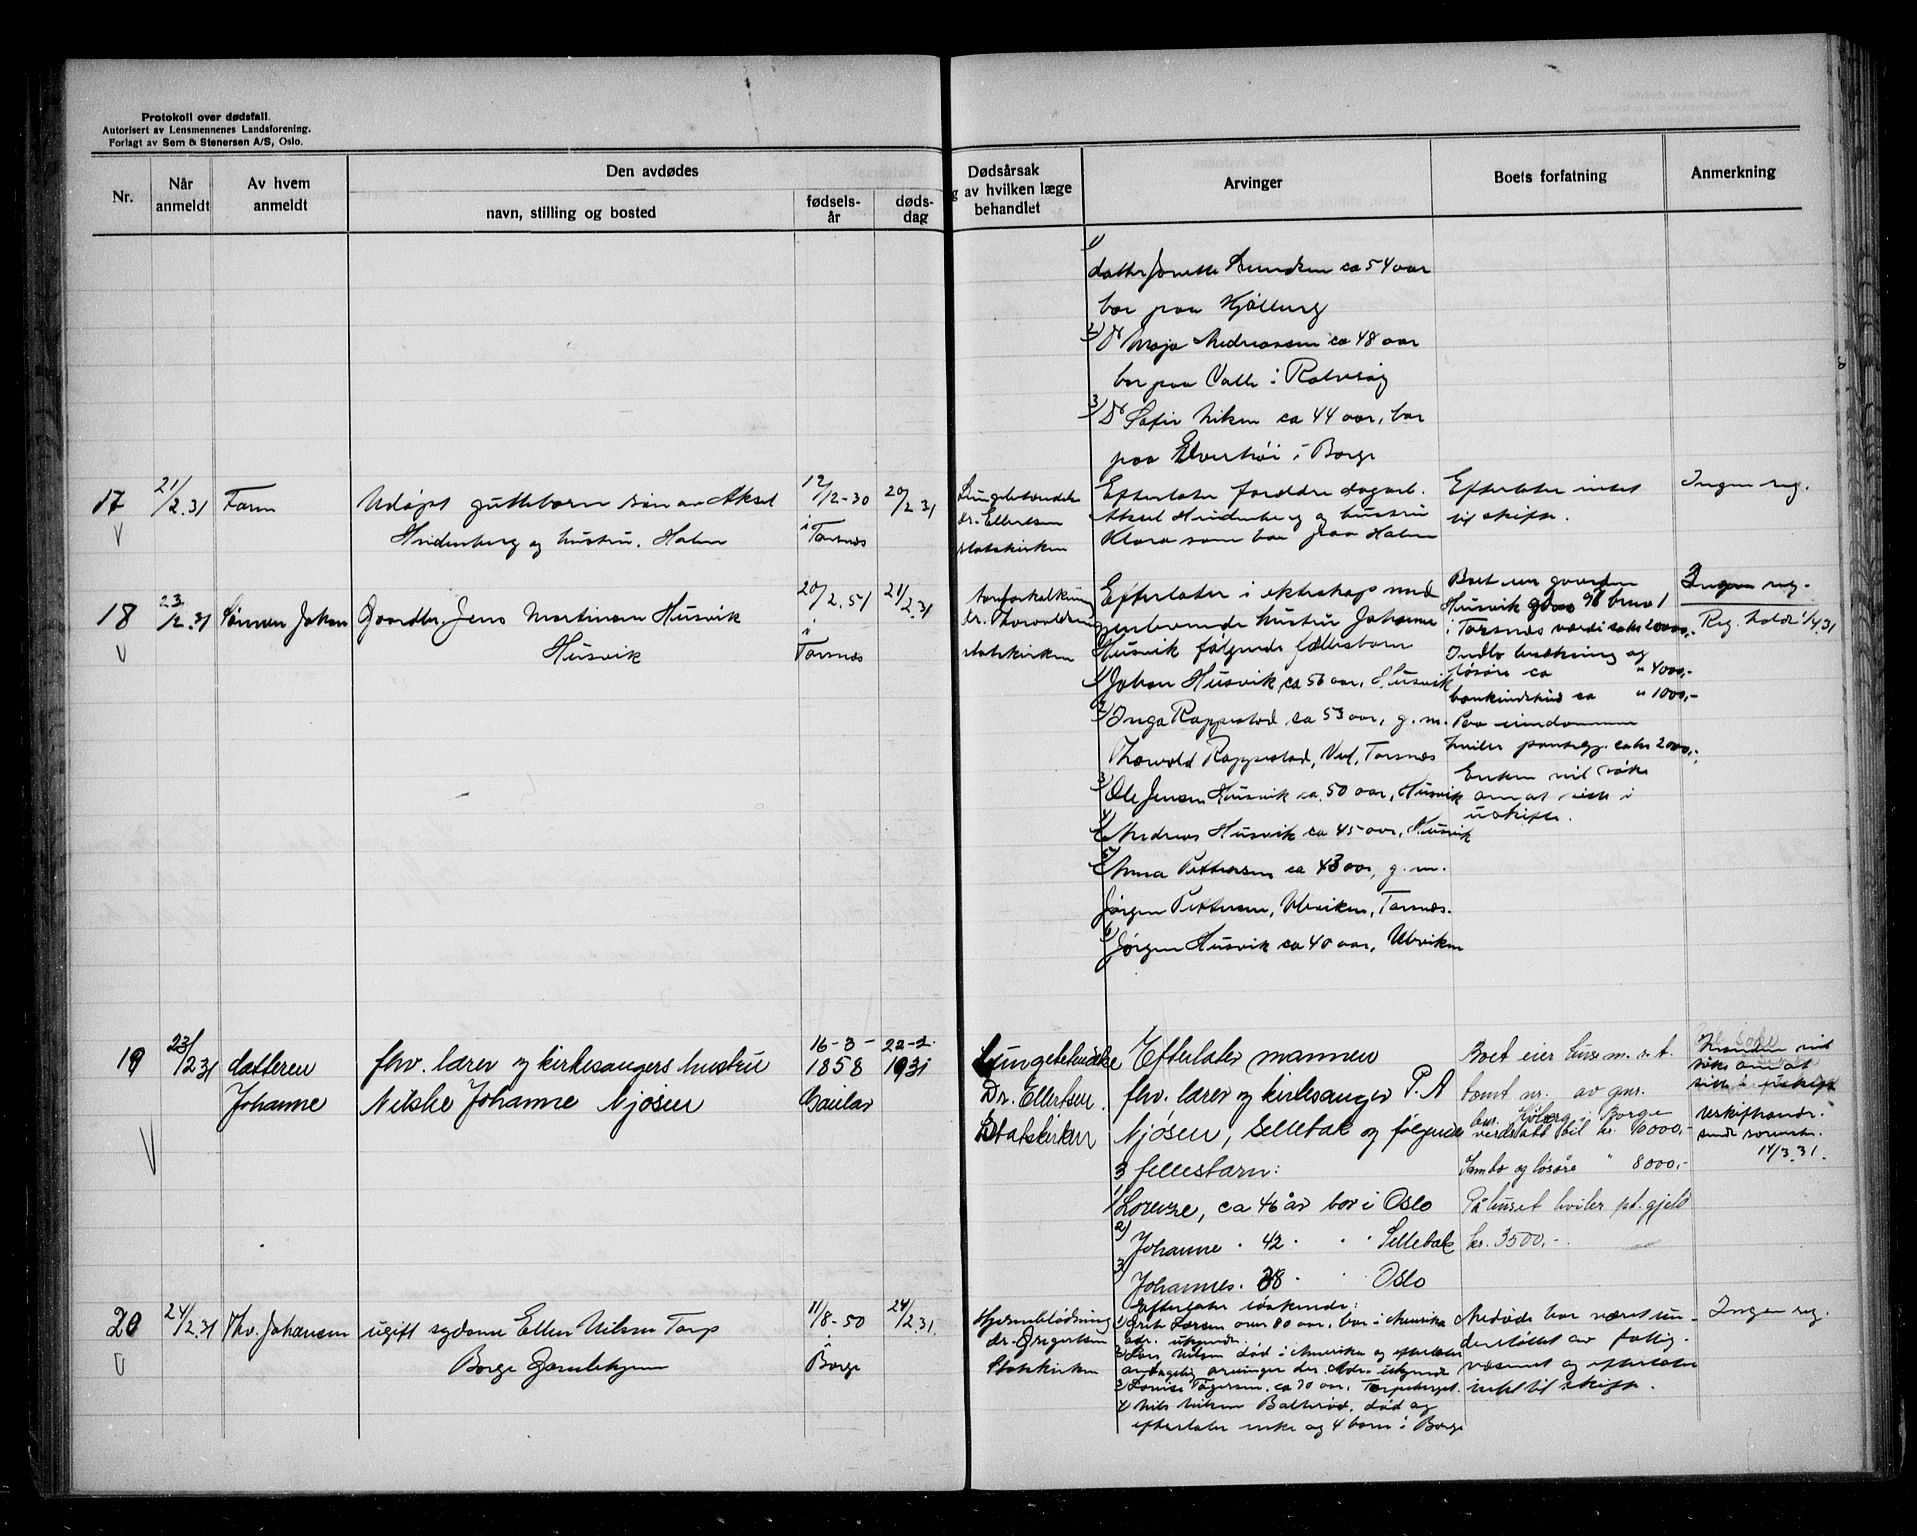 Protokoll over dødsfall.
Autorisert av Lensmennenes Landsforening.
Forlagt av Sem & Stenersen A/S, Oslo.
Nr.
Når anmeldt
Av hvem anmeldt
Den avdødes
navn, stilling og bosted
fødsels-år
døds-dag
Dødsårsak
g av hvilken læge
behandlet
Arvinger
Boets forfatning
Anmerkning
1)
datter Jonette ca 54 aar
bor paa Kjølberg
2) D° Maja Andreassen ca 48 aar
bor paa Valle i Rolvsøy
3) D° Sofie Nilsen ca 44 aar, bor
paa i Borge
17
21/2.31
Farm
Udøpt guttebarn søn av Aksel
Hvidenberg og hustru, Holm
12/2-30
i
Torsnes
20/2 31
Lungebetendelse
dr. Ellertsen
statskirken
Efterlater foreldre dagarb.
Aksel Hvidenberg og hustru
Klara som bor paa Holm
Efterlater intet
til skifte.
Ingen reg.
18
23/2.31
Sønnen Johan
Gaardbr. Jens Martinsen Husvik
Husvik
20/2.51
i
Torsnes
21/2.31
Aareforkalkning
dr. Thorvaldsen
statskirken
Efterlater i ekteskap med
gjenlevende hustru Johanne
Husvik følgende fællesbarn
1) Johan Husvik ca 56 aar, Husvik
2) Inga Rappestad ca 53 aar, g. m.
Thorvald Rappestad, Vel, Torsnes
3) Ole Jensen Husvik ca. 50 aar, Husvik
4) Andreas Husvik ca 45 aar, Husvik
5) Anna Pettersen ca 43 aar, g. m.
Jørgen Pettersen, Ulviken, Torsnes.
6) Jørgen Husvik ca 40 aar, Ulviken
Boet eier gaarden
Husvik gno 98 bruno 1
i Torsnes værdi ca kr 20000,-
Indbo besætning og
løsøre ca " 4000,-
bankindskud ca " 1000,-
Paa eiendommen
hviler pantegj. ca kr 2000,-
Enken vil søke
om at sitte i
uskifte.
Ingen reg.
Reg. holdt 1/4.31
19
23/2 31
datteren
Johanne
fhv. lærer og kirkesangers hustru
Nilske Johanne Njøsen
16-3-
1858
Gaular
22-2-
1931
Lungebetendelse
Dr. Ellertsen.
Statskirken
Efterlater mannen
fhv. lærer og kirkesanger P. A
Njøsen, Sellebak og følgende
3 fellesbarn:
1) Lorenze, ca 46 år bor i Oslo
2) Johanne " 42 " " " Sellebak
3) Johannes " 38 " " Oslo
Boet eier hus m. r. t.
tomt nr. av gnr.
bnr. Kjølberg i Borge
verdsatt til kr. 10000,-
Innbo og løsøre " 8000,-
På huset hviler pt. gjeld
kr. 3500,-
Manden vil
søke om at
sitte i uskifte
uskifteandr.
sendt sorenskr.
14/3.31.
20
24/2.31
Thv. Johansen
ugift sydame Ellen Nilsen Torp
Borge Gamlehjem
11/8-50
i
Borge
24/2.31.
Hjerneblødning
dr. Ingertsen
Statskirken
Efterlater søskende:
1) Grete Larsen over 80 aar, bor i Amerika
adr. ukjendt.
2) Lars Nilsen død i Amerika og efterlater
arvinger der. Adr. ukjendt
3) Lovise Tøgersen, ca 70 aar, Torpeberget.
4) Nils Nilsen død og
efterlater enke og 4 barn i Borge
Avdøde har været un-
derstøttet av fattig-
væsenet og efterlater
intet til skifte.
Ingen reg.